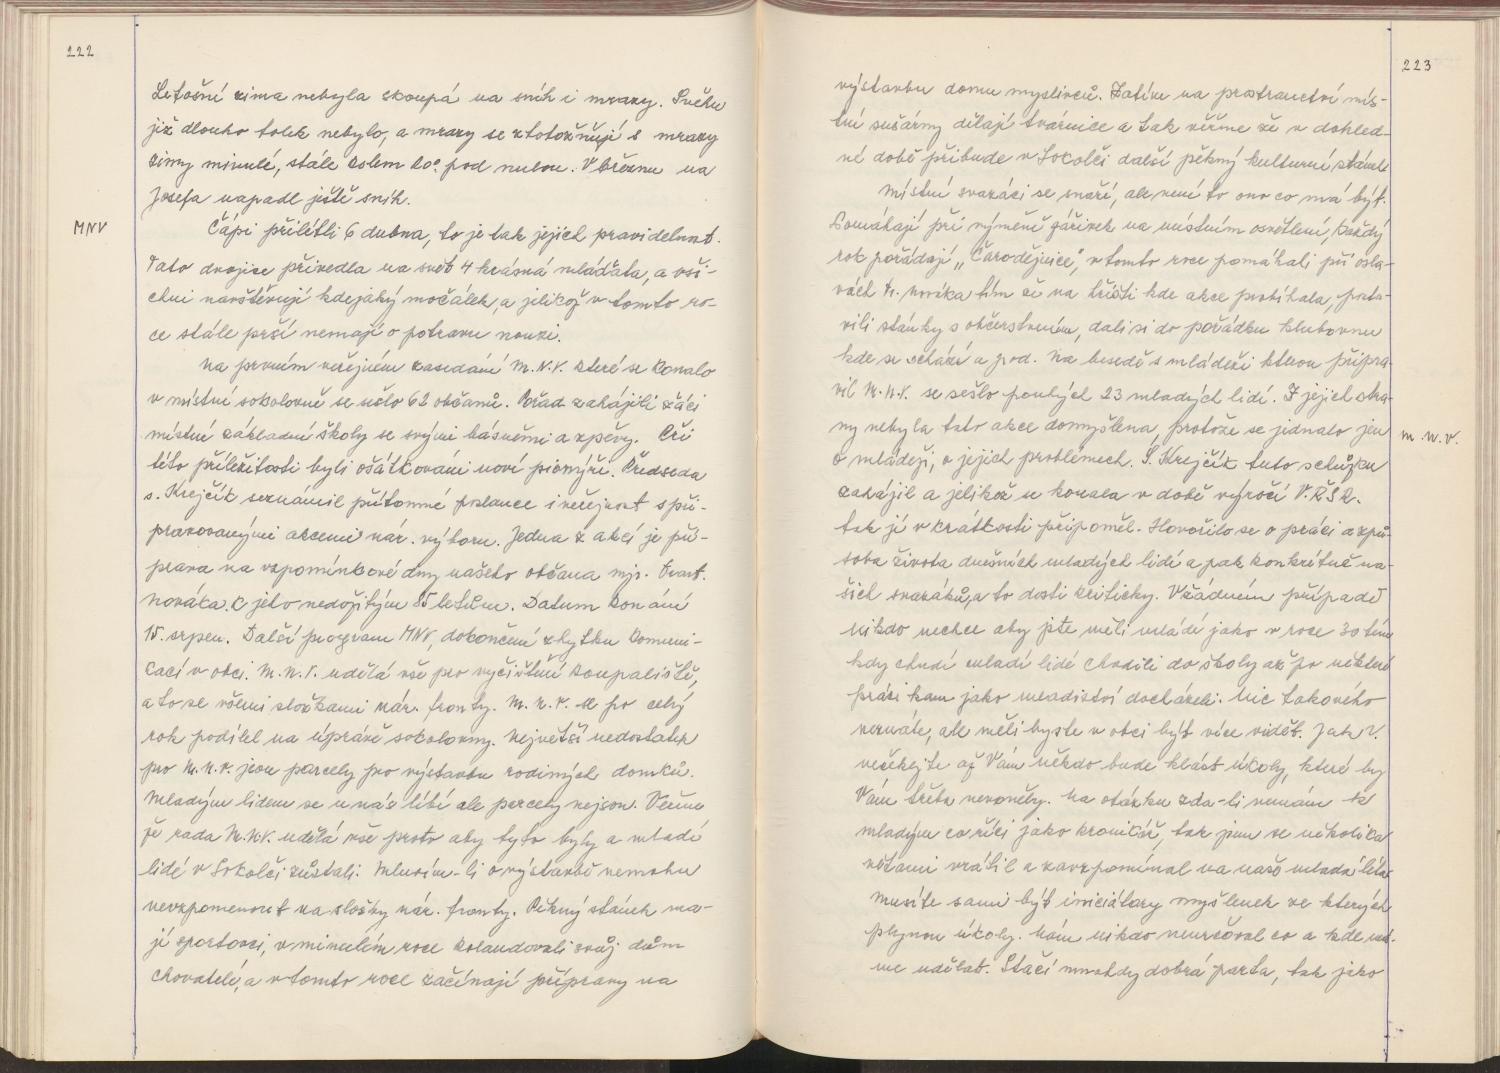 222
Letošní zima nebyla skoupá na sníh i mrazy. Sněhu
již dlouho tolik nebylo, a mrazy se ztotožňují s mrazy
zimy minulé, stále kolem 20° pod nulou. V březnu na
Josefa napadl ještě sníh.
MNV
Čápi přilétli 6 dubna, to je tak jejich pravidelnost.
Tato dvojice přivedla na svět 4 krásná mláďata, a vši-
chni navštěvují kdejaký močálek, a jelikož v tomto ro-
ce stále prší nemají o potravu nouzi.
Na prvním veřejném zasedání M.N.V. které se konalo
v místní sokolovně se sešlo 62 občanů. Pořad zahájili žáci
místní základní školy se svými básněmi a zpěvy. Při
této příležitosti byli ošátkováni noví pionýři. Předseda
s. Krejčík seznámil přítomné poslance i veřejnost s při-
pravovanými akcemi nár. výboru. Jedna z akcí je pří-
prava na vzpomínkové dny našeho občana mjr. Frant.
Nováka k jeho nedožitým 85 letům. Datum konání
15. srpen. Další program MNV, dokončení zbytku komuni-
kací v obci. M.N.V. udělá vše pro vyčištění koupaliště,
a to se všemi složkami nár. fronty. M.N.V. se po celý
rok podílel na úpravě sokolovny. Největší nedostatek
pro M.N.V. jsou parcely pro výstavbu rodinných domků.
Mladým lidem se u nás líbí ale parcely nejsou. Věříme
že rada M.N.V. udělá vše proto aby tyto byly a mladí
lidé v Sokolči zůstali. Mluvím-li o výstavbě nemohu
nevzpomenout na složky nár. fronty. Pěkný stánek ma-
jí sportovci, v minulém roce kolaudovali svůj dům
chovatelé, a v tomto roce začínají přípravy na
223
výstavbu domu myslivců. Zatím na prostranství mís-
tní sušárny dělají tvárnice a tak věříme že v dohled-
né době přibude v Sokolči další pěkný kulturní stánek
Místní svazáci se snaží, ale není to ono co má být.
Pomáhají při výměně zářivek na místním osvětlení, každý
rok pořádají „Čarodějnice", v tomto roce pomáhali při osla-
vách Fr. Nováka tím že na hřišti kde akce probíhala, posta-
vili stánky s občerstvením, dali si do pořádku klubovnu
kde se schází a pod. Na besedě s mládeží kterou připra-
vil M.N.V. se sešlo pouhých 23 mladých lidí. Z jejich stra-
ny nebyla tato akce domyšlena, protože se jednalo jen
m.n.v.
o mládeži, o jejich problémech. S. Krejčík tuto schůzku
zahájil a jelikož se konala v době výročí V.ŘSR.
tak jí v krátkosti připoměl. Hovořilo se o práci a způ-
sobu života dnešních mladých lidí a pak konkrétně na-
šich svazáků, a to dosti kriticky. V žádném případě
nikdo nechce aby jste měli mládí jako v roce 30 tém
kdy chudí mladí lidé chodili do školy až po některé
práci kam jako mladiství docházeli. Nic takového
neznáte, ale měli byste v obci být více vidět. Jak V.
nečekejte až Vám někdo bude klást úkoly, které by
Vám třeba nevoněly. Na otázku zda-li nemám k
mladým co říci jako kronikář, tak jsem se několika
větami vrátil a zavzpomínal na naše mladá léta
Musíte sami být iniciátory myšlenek ze kterých
plynou úkoly. Nám nikdo neurčoval co a kde má-
me udělat. Stačí mnohdy dobrá parta, tak jako